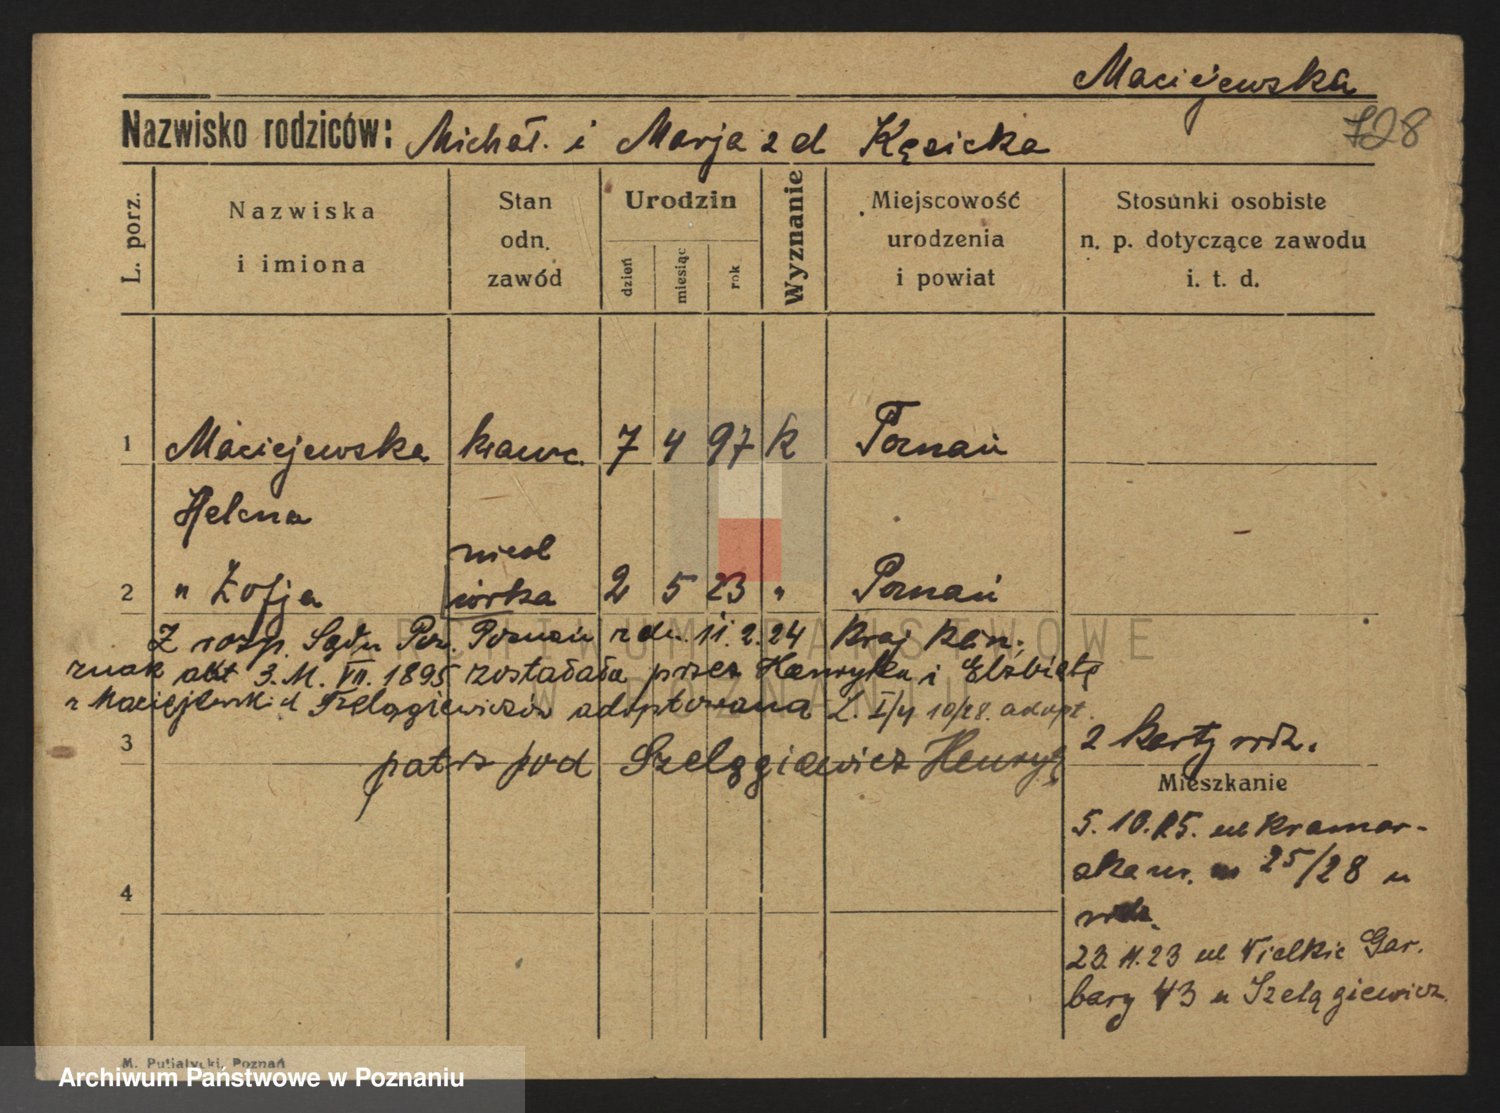 Maciejewska
728
Nazwisko rodziców: Michał. i Marja z d Kęsicka
L. porz.
Nazwiska
i imiona
Stan
odn.
zawód
Urodzin
dzień
miesiąc
rok
Wyznanie
Miejscowość
urodzenia
i powiat
Stosunki osobiste
n. p. dotyczące zawodu
i. t. d.
1 Maciejewska krawc. 7 4 97 k Poznań
Helena
2 " Zofja 2 5 23 " Poznań
Z rozp. Sądu Pow. Poznań z dn. 11.2.24
znak akt 3. M. VII. 1895 została przez Henryka i Elżbietę
z Maciejewskich Szelągiewiczów adoptowana L. I/4 10/28. adopt.
3
patrz pod Szelągiewicz Henryk
2 karty rodz.
Mieszkanie
5. 10. 25. ul Kramar-
ska nr. 25/28 u
rodz.
23. 11. 23 ul Wielkie Gar.
bary 43 u Szelągiewicz
4
M. Putiatycki, Poznań
ARCHIWUM PAŃSTWOWE
W POZNANIU
Archiwum Państwowe w Poznaniu